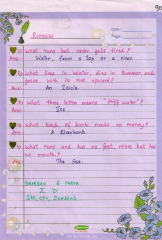 RIDDLE
Q1 What runs but never gets tired?
Ans: Water, from a tap or a river.
What lives in Winter, dies in Summer, and grows with its root upward?
Ans: An Icicle.
What three letters means "stiff water"?
Ans: ICE
What kind of bank needs no money?
Ans: A Riverbank.
What runs and has no feet, roars but has no mouth?
Ans: The Sea.
I D